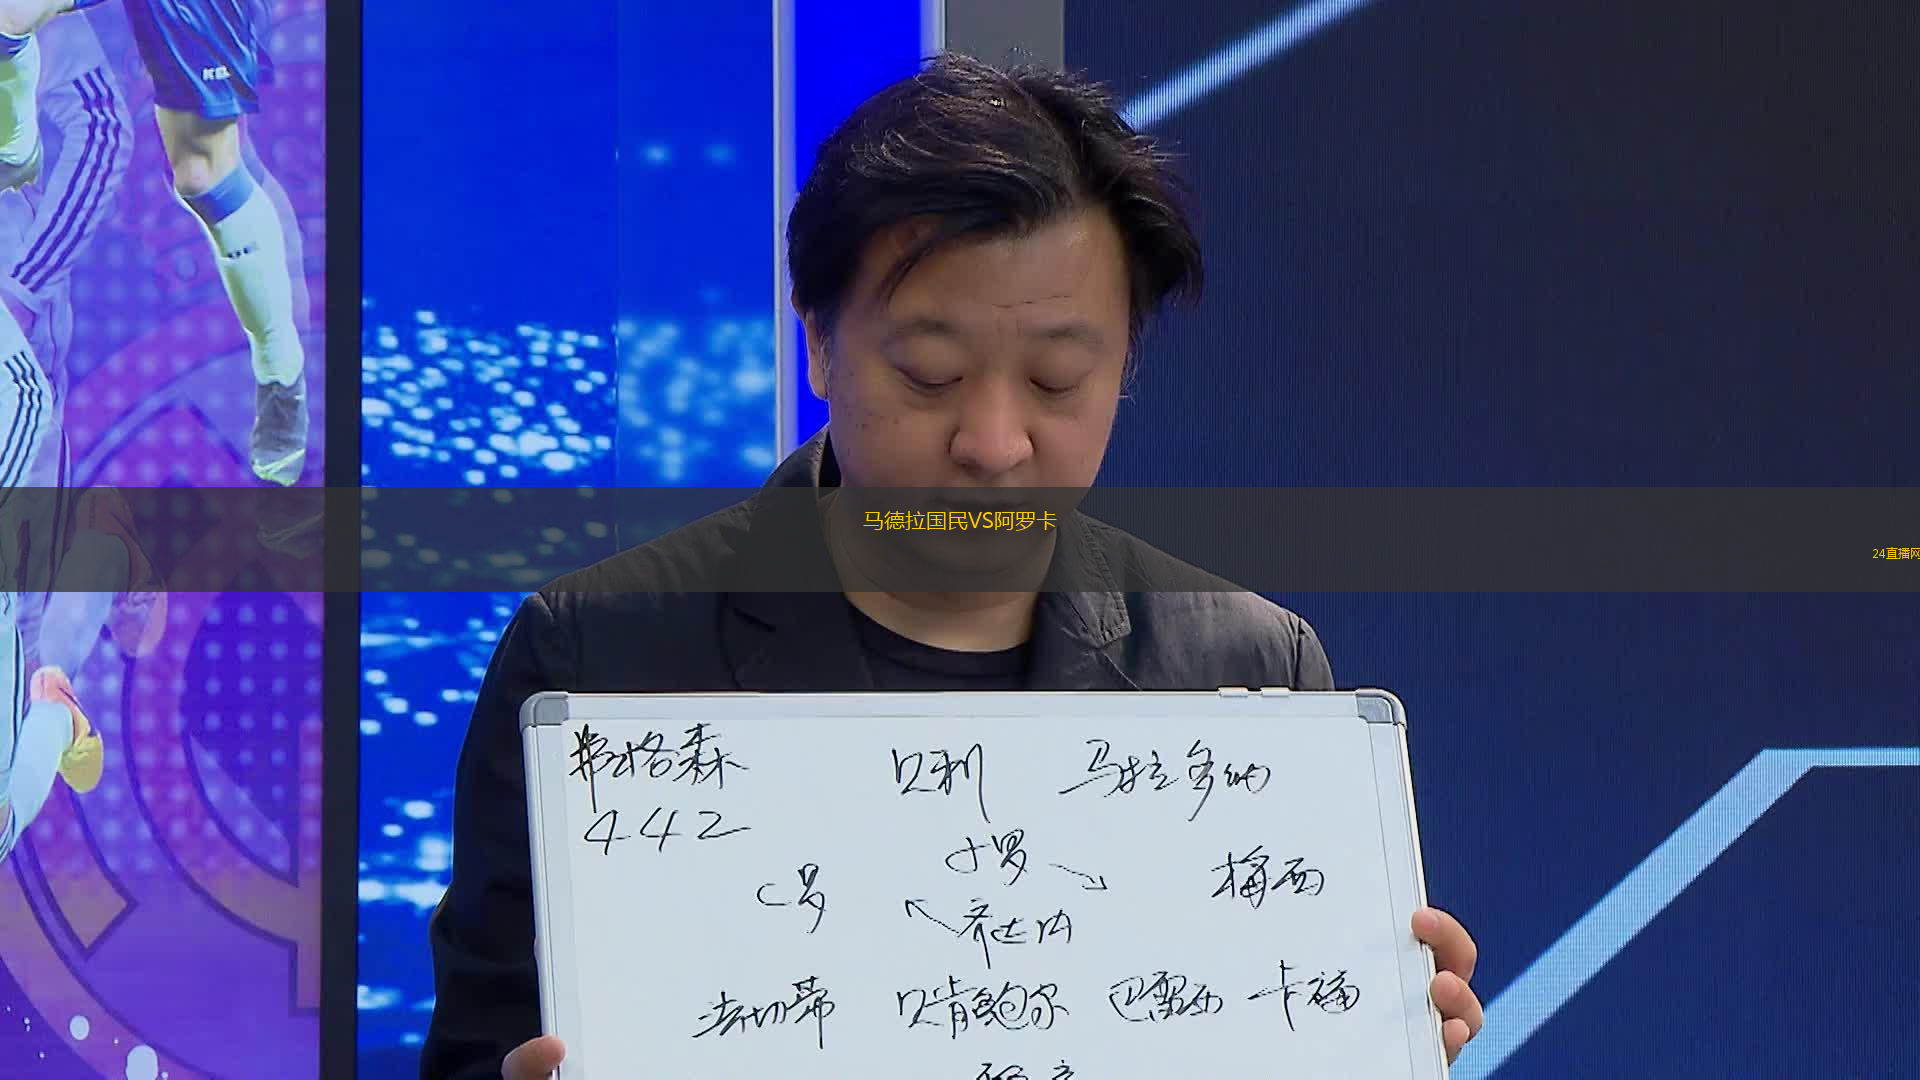 马德拉国民VS阿罗卡
24直播网
弗格森 贝利 马拉多纳
442
小罗
C罗 梅西
齐达内
法切蒂 贝肯鲍尔 巴雷西 卡福